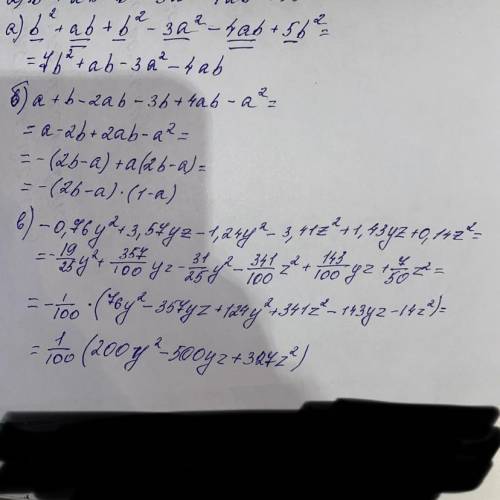 а) b² + ab + b² - 3a² - 4ab + 5b² =
= 7b² + ab - 3a² - 4ab
б) a + b - 2ab - 3b + 4ab - a² =
= a - 2b + 2ab - a² =
= -(2b - a) + a(2b - a) =
= -(2b - a) · (1 - a)
в) - 0,76y² + 3,57yz - 1,24y² - 3,41z² + 1,43yz + 0,14z² =
= - 19/25 y² + 357/100 yz - 31/25 y² - 341/100 z² + 143/100 yz + 7/50 z² =
= - 1/100 · (76y² - 357yz + 124y² + 341z² - 143yz - 14z²) =
= 1/100 (200y² - 500yz + 327z²)